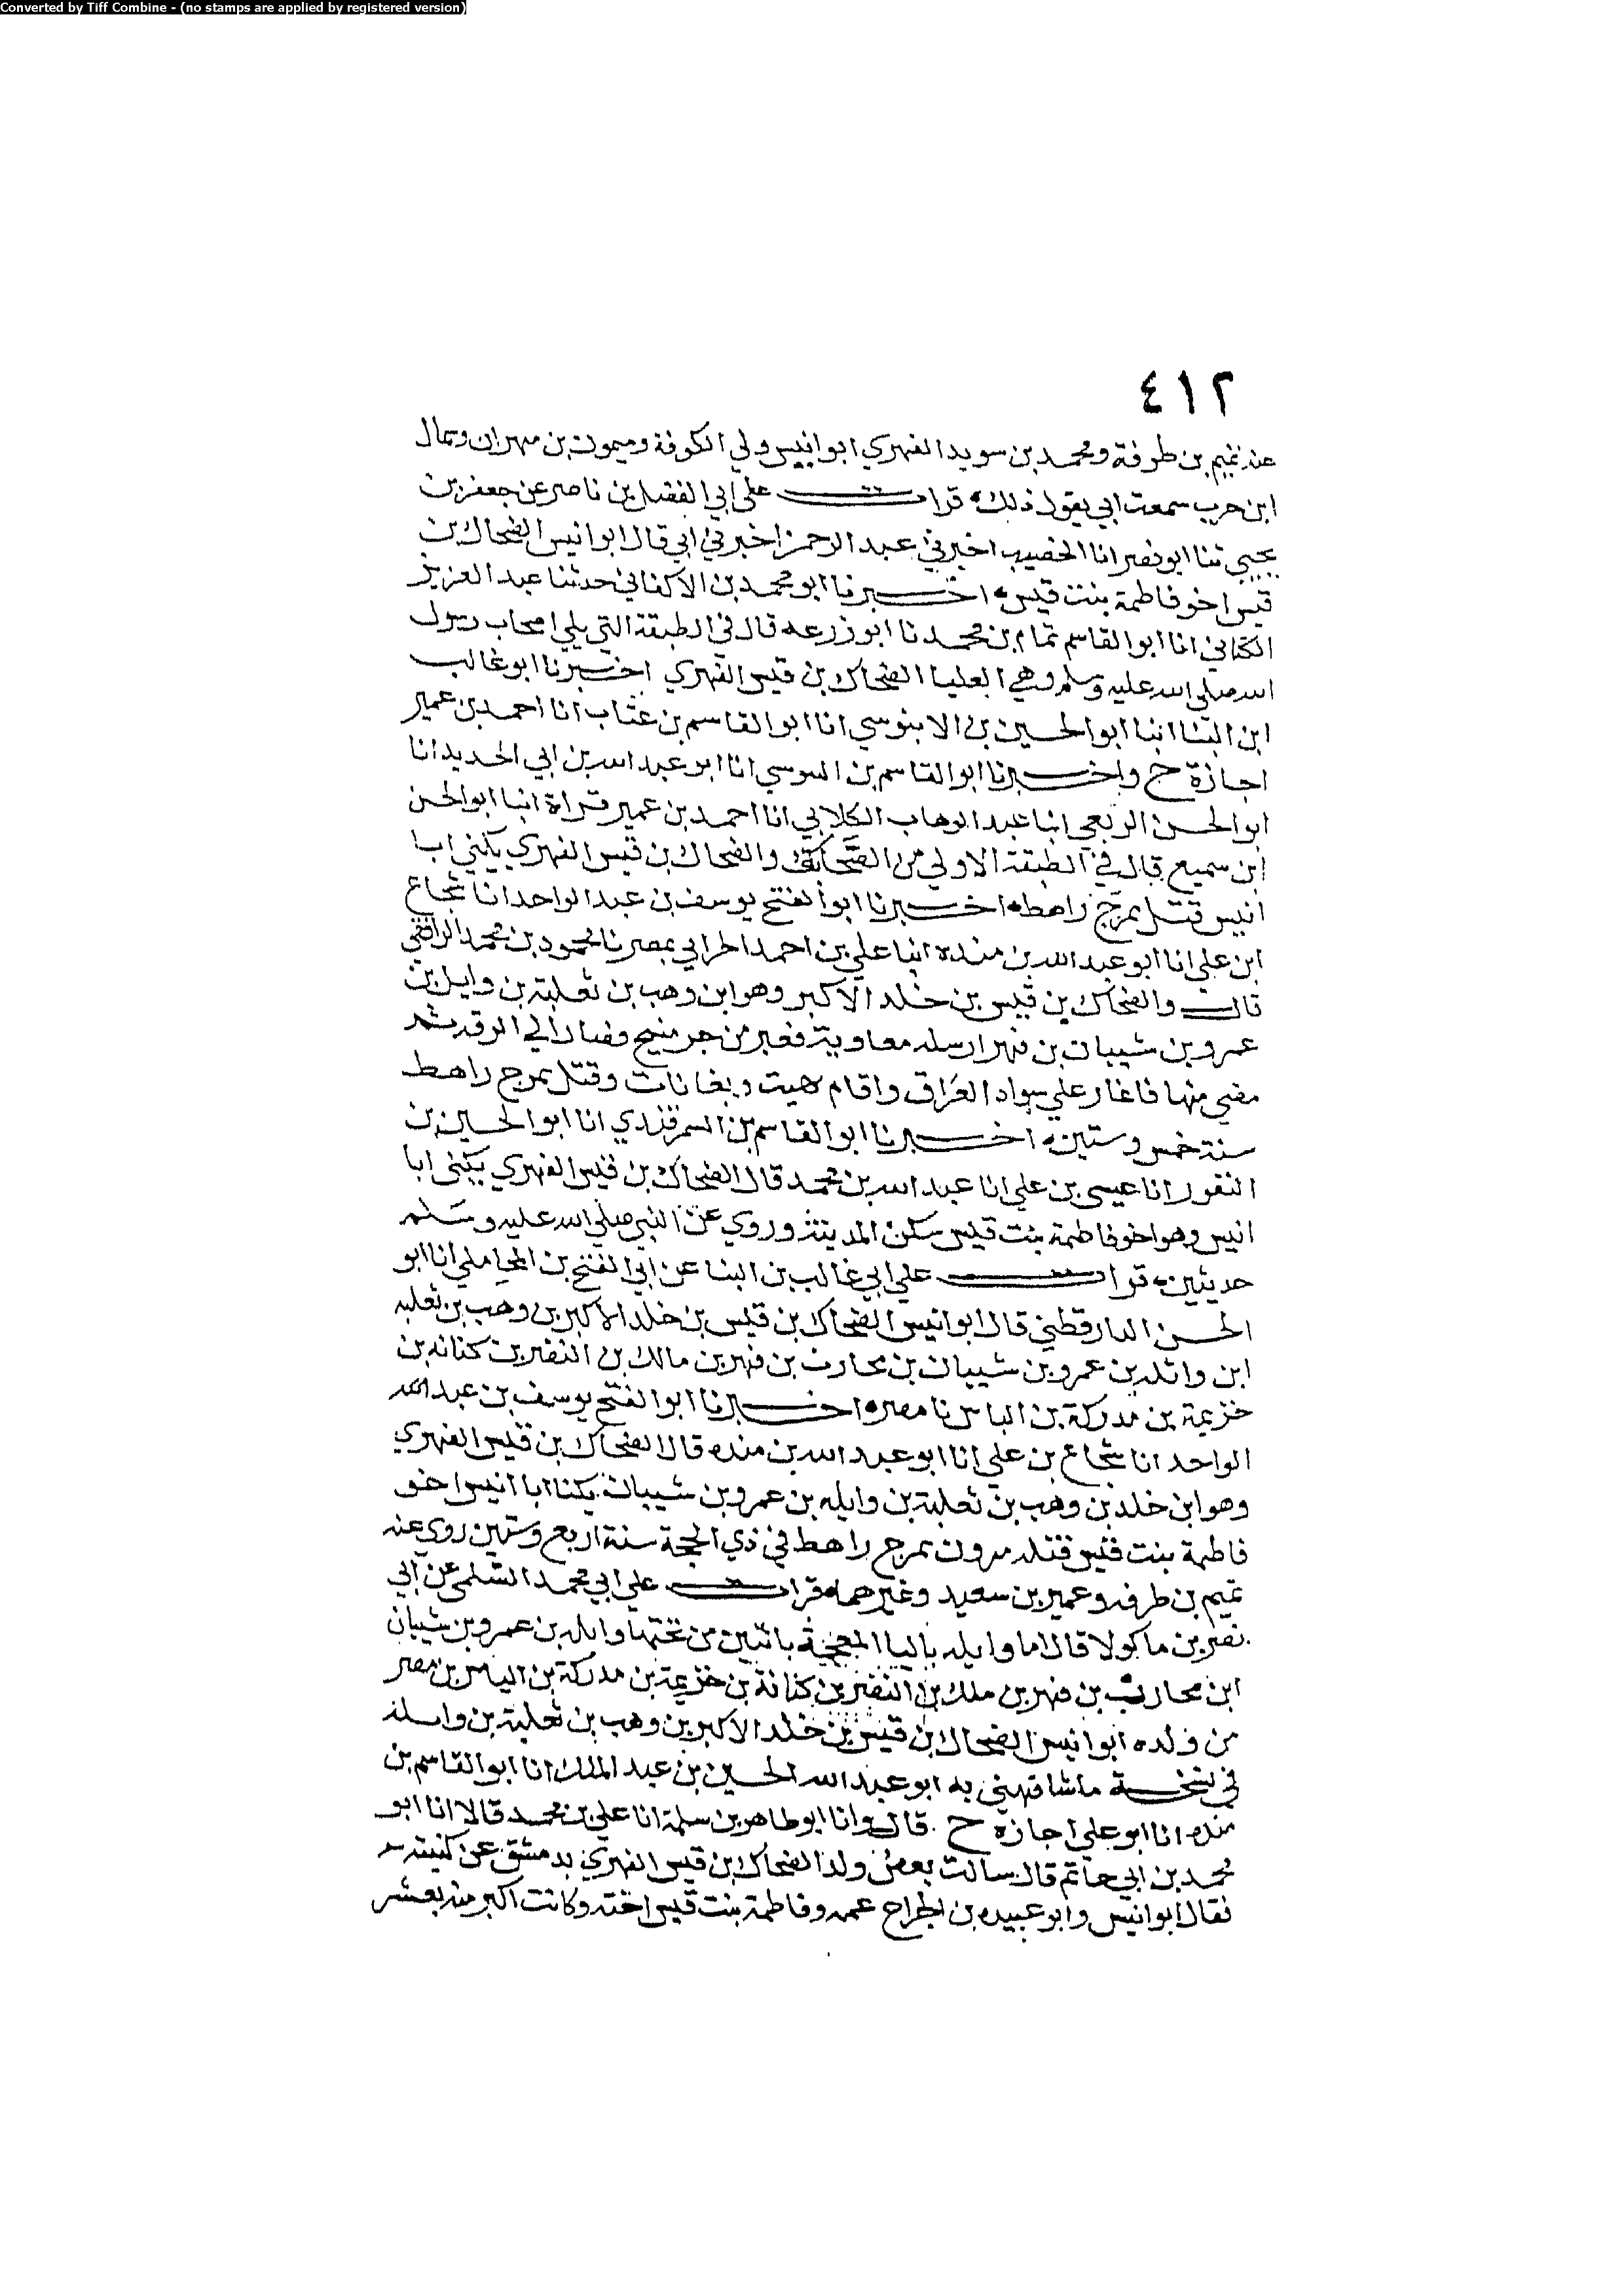 Converted by Tiff Combine - (no stamps are applied by registered version)
٤١٢
عنه تميم بن طرفة ومحمد بن سويد الفهري ابو انيس ولي الكوفة وميمون بن مهران وسماك
ابن حرب سمعت ابي يقول ذلك قرات على ابي الفضل بن ناصر عن جعفر بن
يحيى ثنا ابو نصر انا الخصيب اخبرني عبد الرحمن اخبرني ابي قال ابو انيس الضحاك بن
قيس اخو فاطمة بنت قيس اخبرنا ابو محمد بن الاكفاني حدثنا عبد العزيز
الكتاني انا ابو القاسم تمام بن محمد نا ابو زرعه قال في الطبقة التي يلي اصحاب رسول
الله صلى الله عليه وسلم وهي العليا الضحاك بن قيس الفهري اخبرنا ابو غالب
ابن البنا انبا ابو الحسين بن الابنوسي انا ابو القاسم بن عتاب انا احمد بن عمير
اجازة ح واخبرنا ابو القاسم بن السوسي انا ابو عبد الله بن ابي الحديد انا
ابو الحسن الربعي انبا عبد الوهاب الكلابي انا احمد بن عمير قراة انبا ابو الحسن
ابن سميع قال في الطبقة الاولي من الصحابة والضحاك بن قيس الفهري يكني ابا
انيس قتل بمرج راهط اخبرنا ابو الفتح يوسف بن عبد الواحد انا شجاع
ابن علي انا ابو عبد الله بن منده انبا علي بن احمد الحرابي بمصر نا محمود بن محمد الرافقي
قال والضحاك بن قيس بن خلد الاكبر وهو ابن وهب بن ثعلبة بن وايل بن
عمرو بن شيبان بن فهر ارسله معاوية فعبر من جسر منبج وصار الي الرقه ثم
مضي منها فاغار علي سواد العراق واقام بهيت وبعانات وقتل بمرج راهط
سنة خمس وستين اخبرنا ابو القاسم بن السمرقندي انا ابو الحسين بن
النقور انا عيسى بن علي انا عبد الله بن محمد قال الضحاك بن قيس الفهري يكنى ابا
انيس وهو اخو فاطمة بنت قيس سكن المدينة وروي عن النبي صلي الله عليه وسلم
حديثين قرات علي ابي غالب بن البنا عن ابي الفتح بن المحاملي انا ابو
الحسن الدارقطني قال ابو انيس الضحاك بن قيس بن خلد الاكبر بن وهب بن ثعلبه
ابن وائله بن عمرو بن شيبان بن محارب بن فهر بن مالك بن النضر بن كنانه بن
خزيمة بن مدركة بن الياس نا مصر اخبرنا ابو الفتح يوسف بن عبد الله
الواحد انا شجاع بن علي انا ابو عبد الله بن منده قال الضحاك بن قيس الفهري
وهو ابن خلد بن وهب بن ثعلبة بن وايله بن عمرو بن شيبان يكنا ابا انيس اخو
فاطمة بنت قيس قتله مرون بمرج راهط في ذي الحجة سنة اربع وستين روي عنه
تميم بن طرفه وعمير بن سعيد وغيرهما قرات علي ابي محمد السلمي عن ابي
نصر بن ماكولا قال اما وايله باليا المعجمة باثنين من تحتها وايله بن عمرو بن شيبان
ابن محارب بن فهر بن ملك بن النضر بن كنانة بن خزيمة بن مدركة بن الياس بن مصر
من ولده ابو انيس الضحاك بن قيس بن خلد الاكبر بن وهب بن ثعلبة بن وايله
في نسخة ما شافهني به ابو عبد الله الحسين بن عبد الملك انا ابو القاسم بن
منده انا ابو علي اجازه ح قال وانا ابو طاهر بن سلمة انا علي بن محمد قالا انا ابو
محمد بن ابي حاتم قال سالت بعض ولد الضحاك بن قيس الفهري بدمشق عن كنيته
فقال ابو انيس وابو عبيده بن الجراح عمه وفاطمة بنت قيس اخته وكانت اكبر منه بعشر